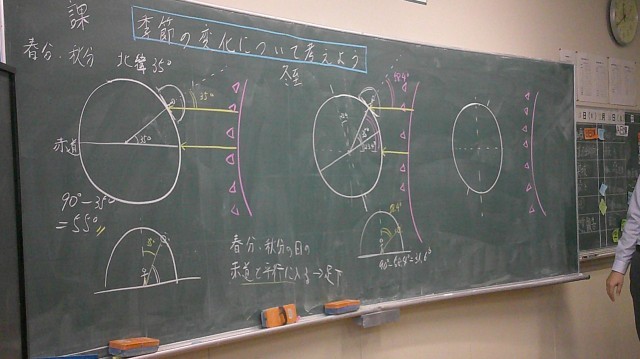 課
季節の変化について考えよう
春分・秋分
北緯35°
冬至
35°
58.4°
赤道
35°
90°-35°
=55°
春分・秋分の日の
赤道と平行に入る→足下
90°-58.4°=31.6°